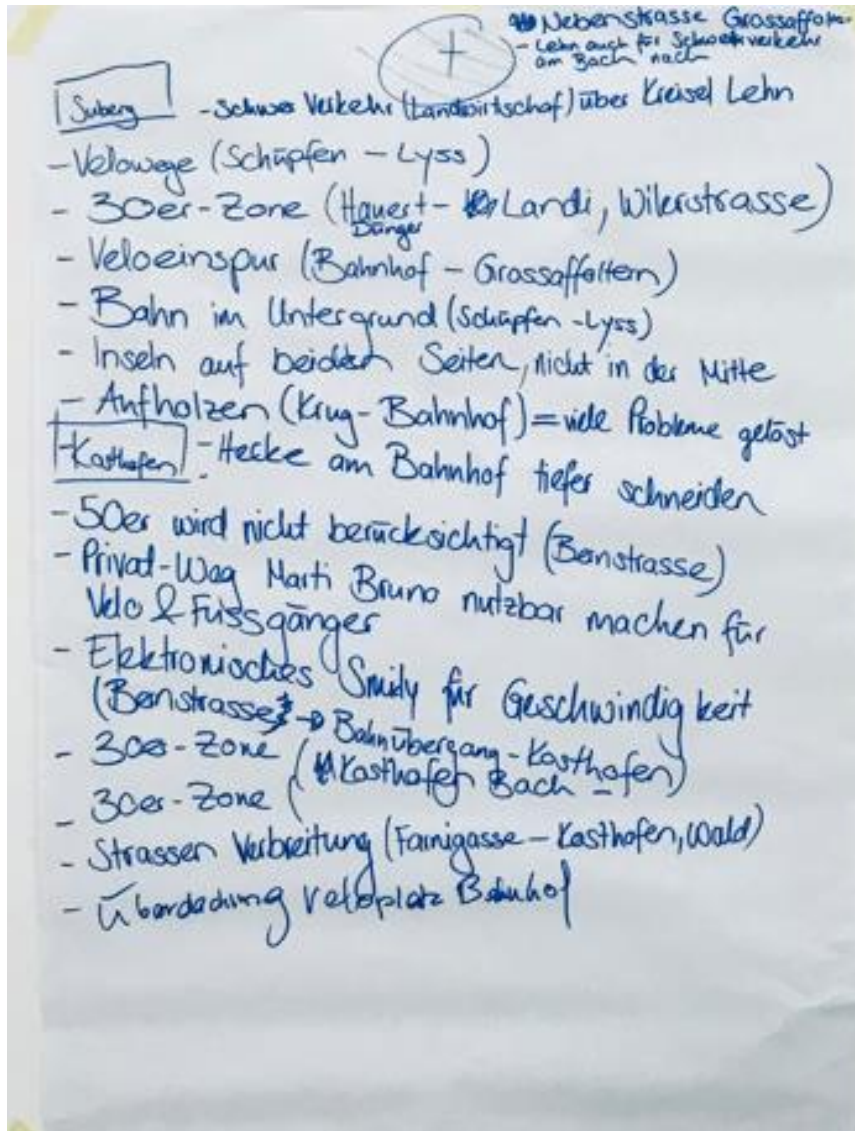 +
Nebenstrasse Grossaffoltern
- Lehn auch für Schwerverkehr
am Bach nach
Suberg - Schwer Verkehr (Landwirtschaf) über Kreisel Lehn
- Velowege (Schüpfen - Lyss)
- 30er-Zone (Hauert - Landi, Wilerstrasse)
Dünger
- Veloeinspur (Bahnhof - Grossaffoltern)
- Bahn im Untergrund (Schüpfen - Lyss)
- Inseln auf beiden Seiten, nicht in der Mitte
- Aufholzen (Krug - Bahnhof) = viele Probleme gelöst
Kasthofen - Hecke am Bahnhof tiefer schneiden
- 50er wird nicht berücksichtigt (Bernstrasse)
- Privat-Weg Marti Bruno nutzbar machen für
Velo & Fussgänger
- Elektronisches Smily für Geschwindigkeit
(Bernstrasse)
- 30er-Zone (Bahnübergang - Kasthofen)
- 30er-Zone (Kasthofen Bach -
- Strassen Verbreitung (Fainigasse - Kasthofen, Wald)
- Überdachung Veloplatz Bahnhof